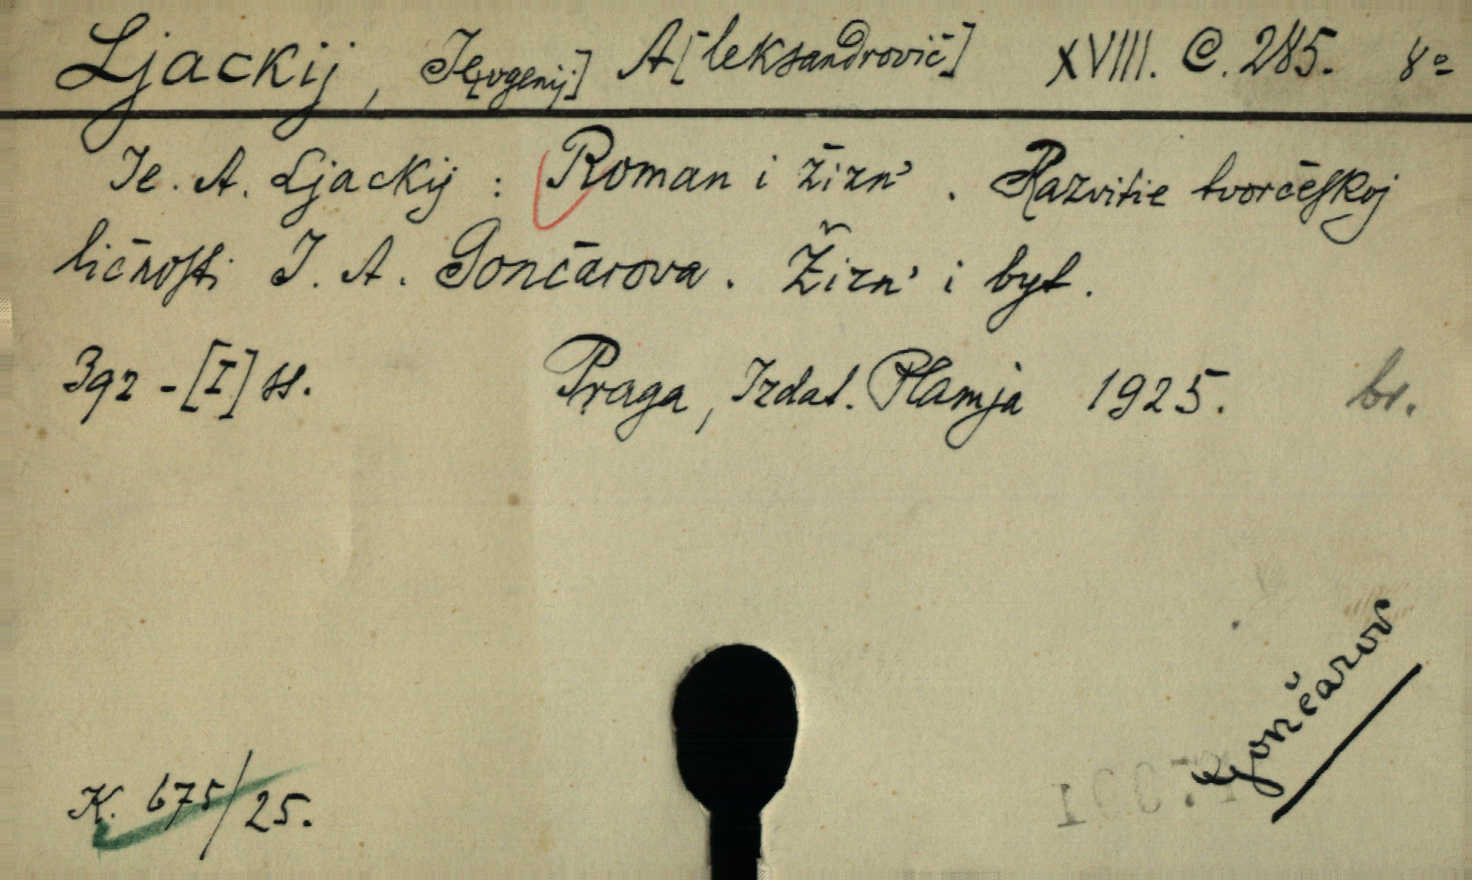 Ljackij, Je[vgenij] A[leksandrovič] XVIII. C. 285. 8°
Je. A. Ljackij : Roman i žizn' . Razvitie tvorčeskoj
ličnosti I. A. Gončarova. Žizn' i byt.
392 - [I] ss. Praga, Izdat. Plamja 1925. br.
Gončarov
K. 675/25.